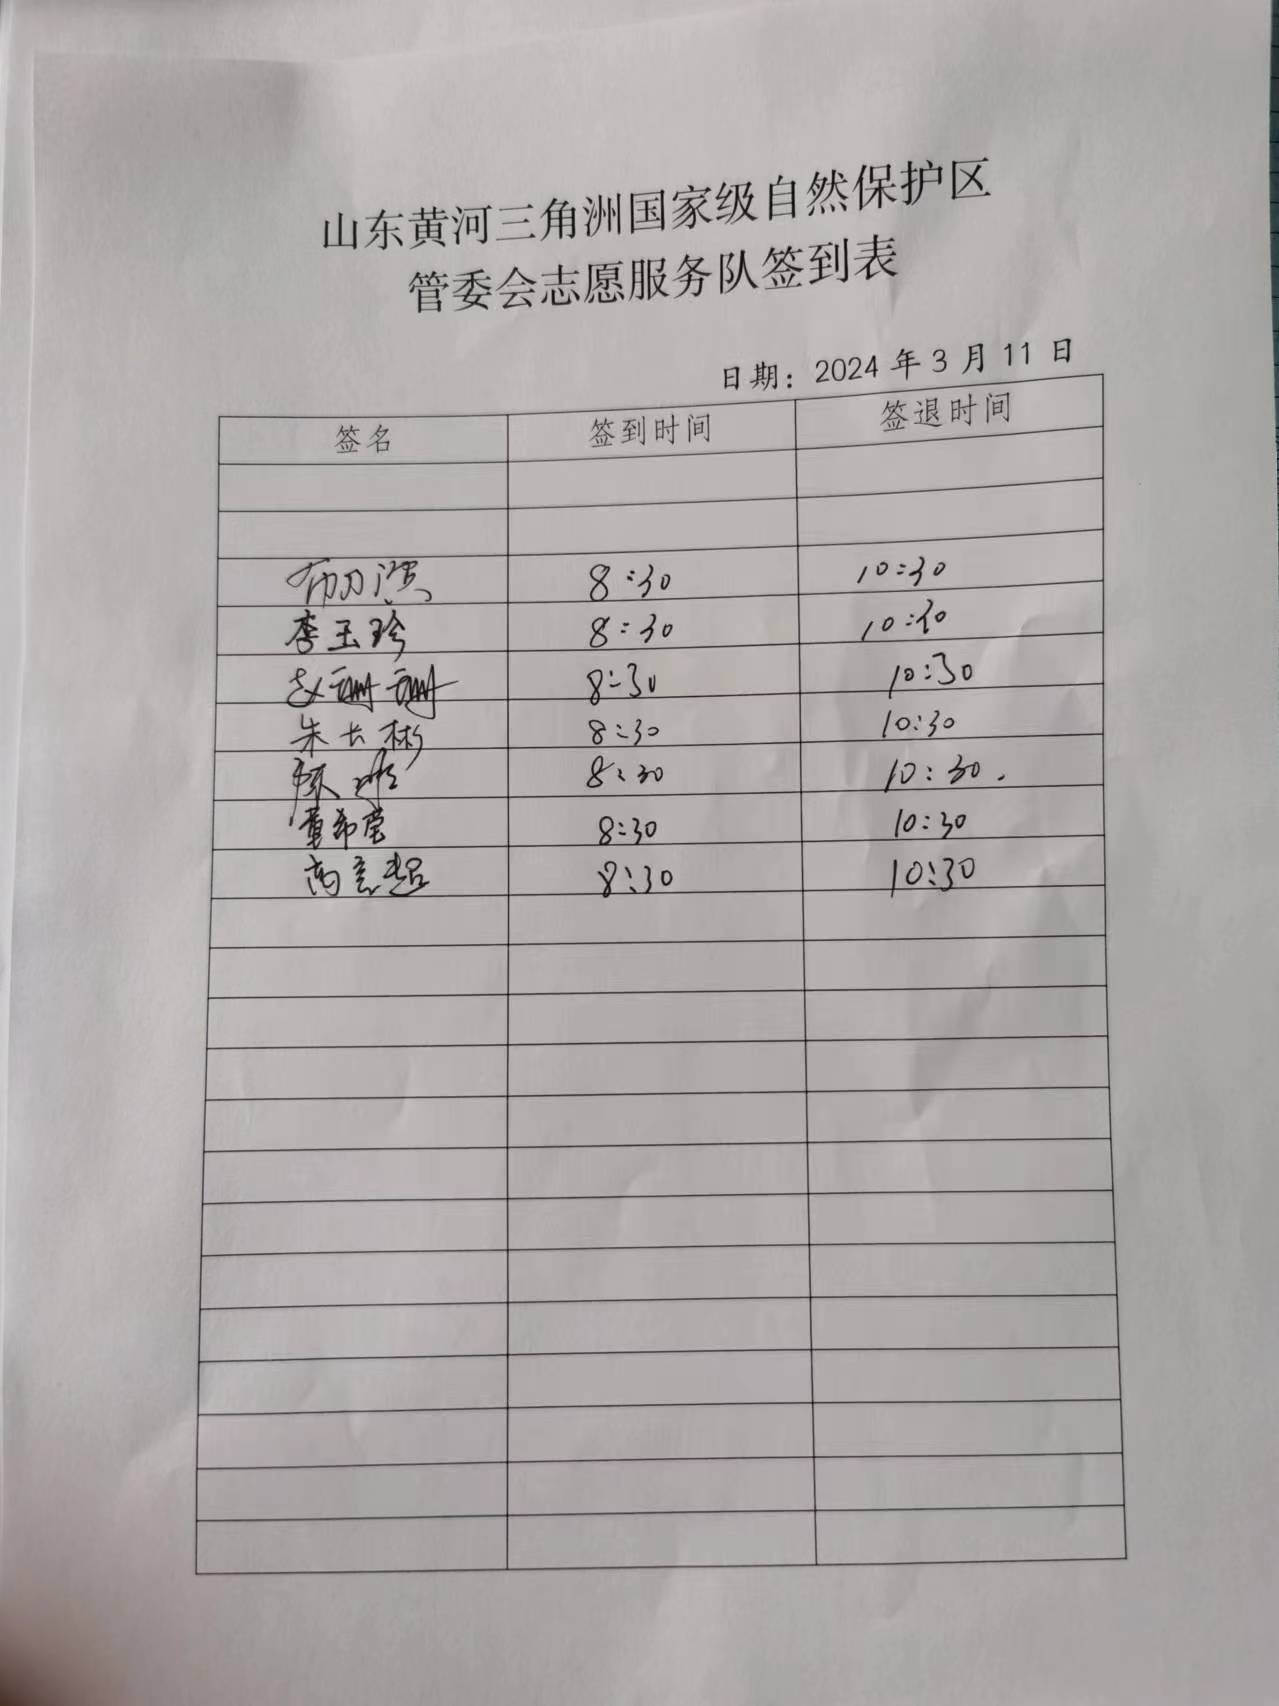 山东黄河三角洲国家级自然保护区
管委会志愿服务队签到表
日期：2024年3月11日
签名 签到时间 签退时间
8:30 10:30
李玉珍 8:30 10:30
赵珊珊 8:30 10:30
朱长彬 8:30 10:30
陈 8:30 10:30.
董希莹 8:30 10:30
高 超 8:30 10:30